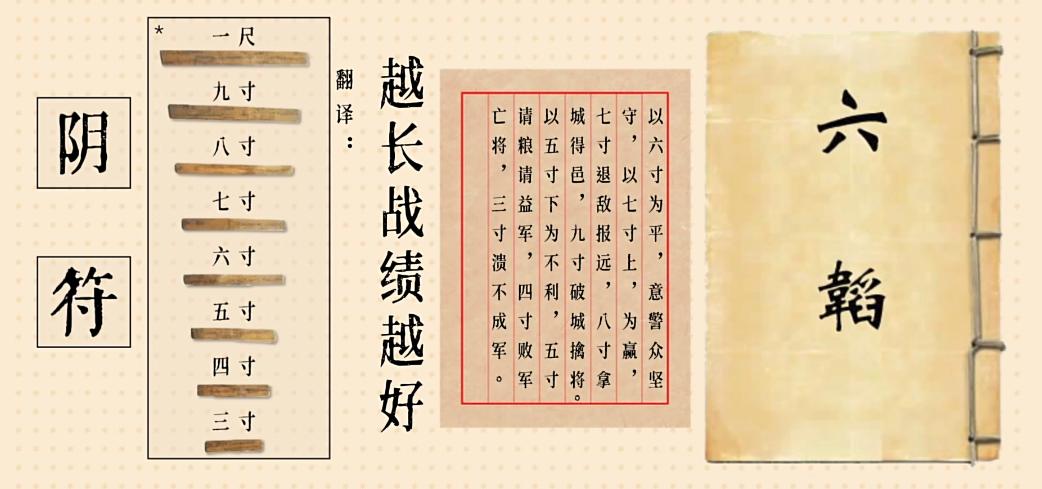 阴
符
*
一尺
九寸
八寸
七寸
六寸
五寸
四寸
三寸
翻译：
越长战绩越好
以六寸为平，意警众坚
守，以七寸上，为赢，
七寸退敌报远，八寸拿
城得邑，九寸破城擒将。
以五寸下为不利，五寸
请粮请益军，四寸败军
亡将，三寸溃不成军。
六韜